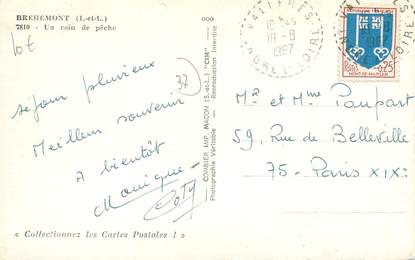 BREHEMONT (I.-et-L.)
7810 - Un coin de pêche
10€
37
séjour pluvieux
Meilleur souvenir
A bientôt
Monique
« Collectionnez les Cartes Postales ! »
COMBIER IMP. MACON (S.-et-L.) "CIM"
Photographie Véritable - Reproduction Interdite
18 -8
1967
INDRE ET LOIRE
0,25
MONT-DE-MARSAN
Mr et Mme Poupart
59, Rue de Belleville
75 - Paris XIX: